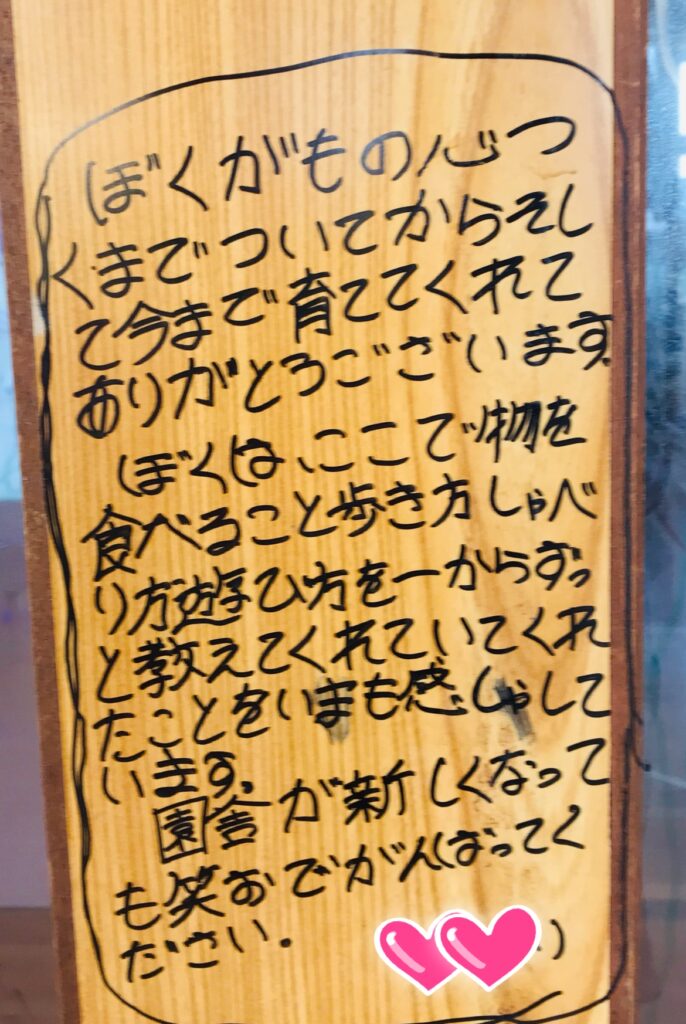 ぼくがもの心つ
くまでついてからそし
て今まで育ててくれて
ありがとうございます。
ぼくは、ここで物を
食べること歩き方しゃべ
り方遊び方を一からずっ
と教えてくれていてくれ
たことをいまも感しゃして
います。
園舎が新しくなって
も笑おでがんばってく
ださい.